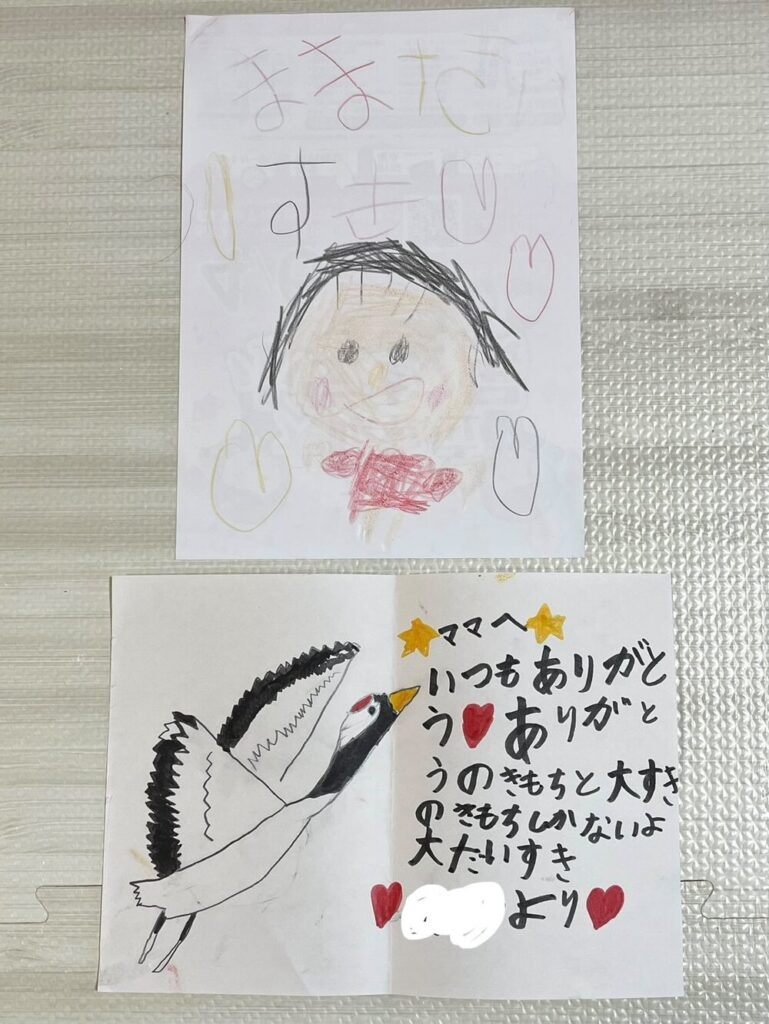 ままだい
すき
ママへ
いつもありがと
う♥ありがと
うのきもちと大すき
のきもちしかないよ
大だいすき
より